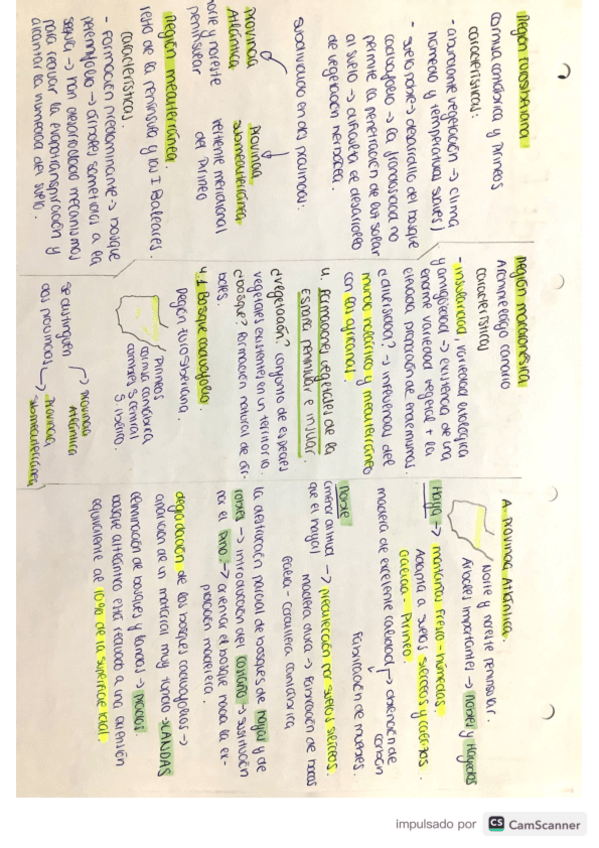 Región Eurosiberiana
Cornisa cantábrica y Pirineos
características:
- abundante vegetación → clima
húmedo y temperaturas suaves
- suelo pobre → desarrollo del bosque
caducifolio → la frondosidad no
permite la penetración de luz solar
al suelo → dificulta el desarrollo
de vegetación herbácea.
subdividido en dos provincias:
Provincia Atlántica
norte y noreste
peninsular
Provincia
submediterránea
vertiente meridional
del Pirineo
Región mediterránea.
resto de la península y las I Baleares.
características.
- Formación predominante → bosque
perennifolio → árboles sometidos a la
sequía → han desarrollado mecanismos
para reducir la evapotranspiración y
alcanzar la humedad del suelo.
Región macaronésica
Archipiélago canario
características
- insularidad, variedad ecológica
y antigüedad → existencia de una
enorme variedad vegetal + la
elevada proporción de endemismos.
¿diversidad? → influencias del
mundo holártico y mediterráneo
con las africanas.
4. Formaciones vegetales de la
España peninsular e insular.
¿vegetación? conjunto de especies
vegetales existente en un territorio.
¿bosque? Formación natural de ár-
boles.
4.1 Bosque caducifolio.
Región Eurosiberiana.
Pirineos
cornisa cantábrica
cumbres S. central
S. ibérico.
se distinguen
dos provincias
Provincia
Atlántica
Provincia
submediterránea
A. Provincia Atlántica.
Norte y noreste peninsular.
Árboles importantes → Robles y Hayedos
Haya → montañas fresco-húmedas.
Adapta a suelos silíceos y calizos.
Galicia - Pirineo.
madera de excelente calidad → obtención de
carbón
Fabricación de muebles.
Roble
(menor altitud → predilección por suelos silíceos.
que el haya)
madera dura → fabricación de barcos
Galicia - Cordillera Cantábrica
la destrucción parcial de bosques de hayas y de
robles → introducción del castaño → sustitución
por el pino → orientar el bosque hacia la ex-
plotación maderera.
degradación de los bosques caducifolios →
aparición de un matorral muy tupido → LANDAS
eliminación de bosques y landas → prados.
bosque atlántico está reducido a una extensión
equivalente de 10% de la superficie total.
impulsado por CS CamScanner